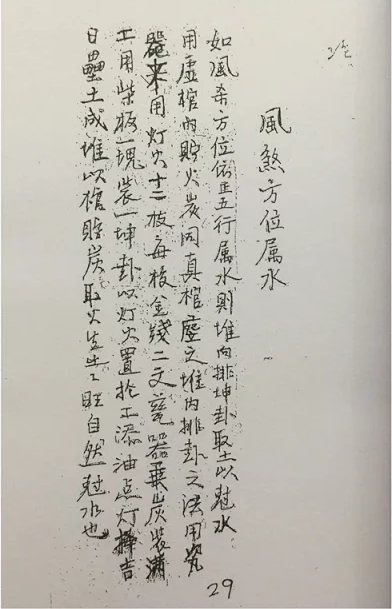 風煞方位属水
如風煞方位依正五行属水則堆内排坤卦取土以尅水
用虚棺内貯火炭同真棺塟之堆内排卦之法用瓷
器来用灯火十二枝每枝金錢二文瓷器乗灰装满
工用柴板一塊装一坤卦以灯火置於工添油点灯擇吉
日壘土成堆以棺貯炭取火生土土旺自然尅水也
29